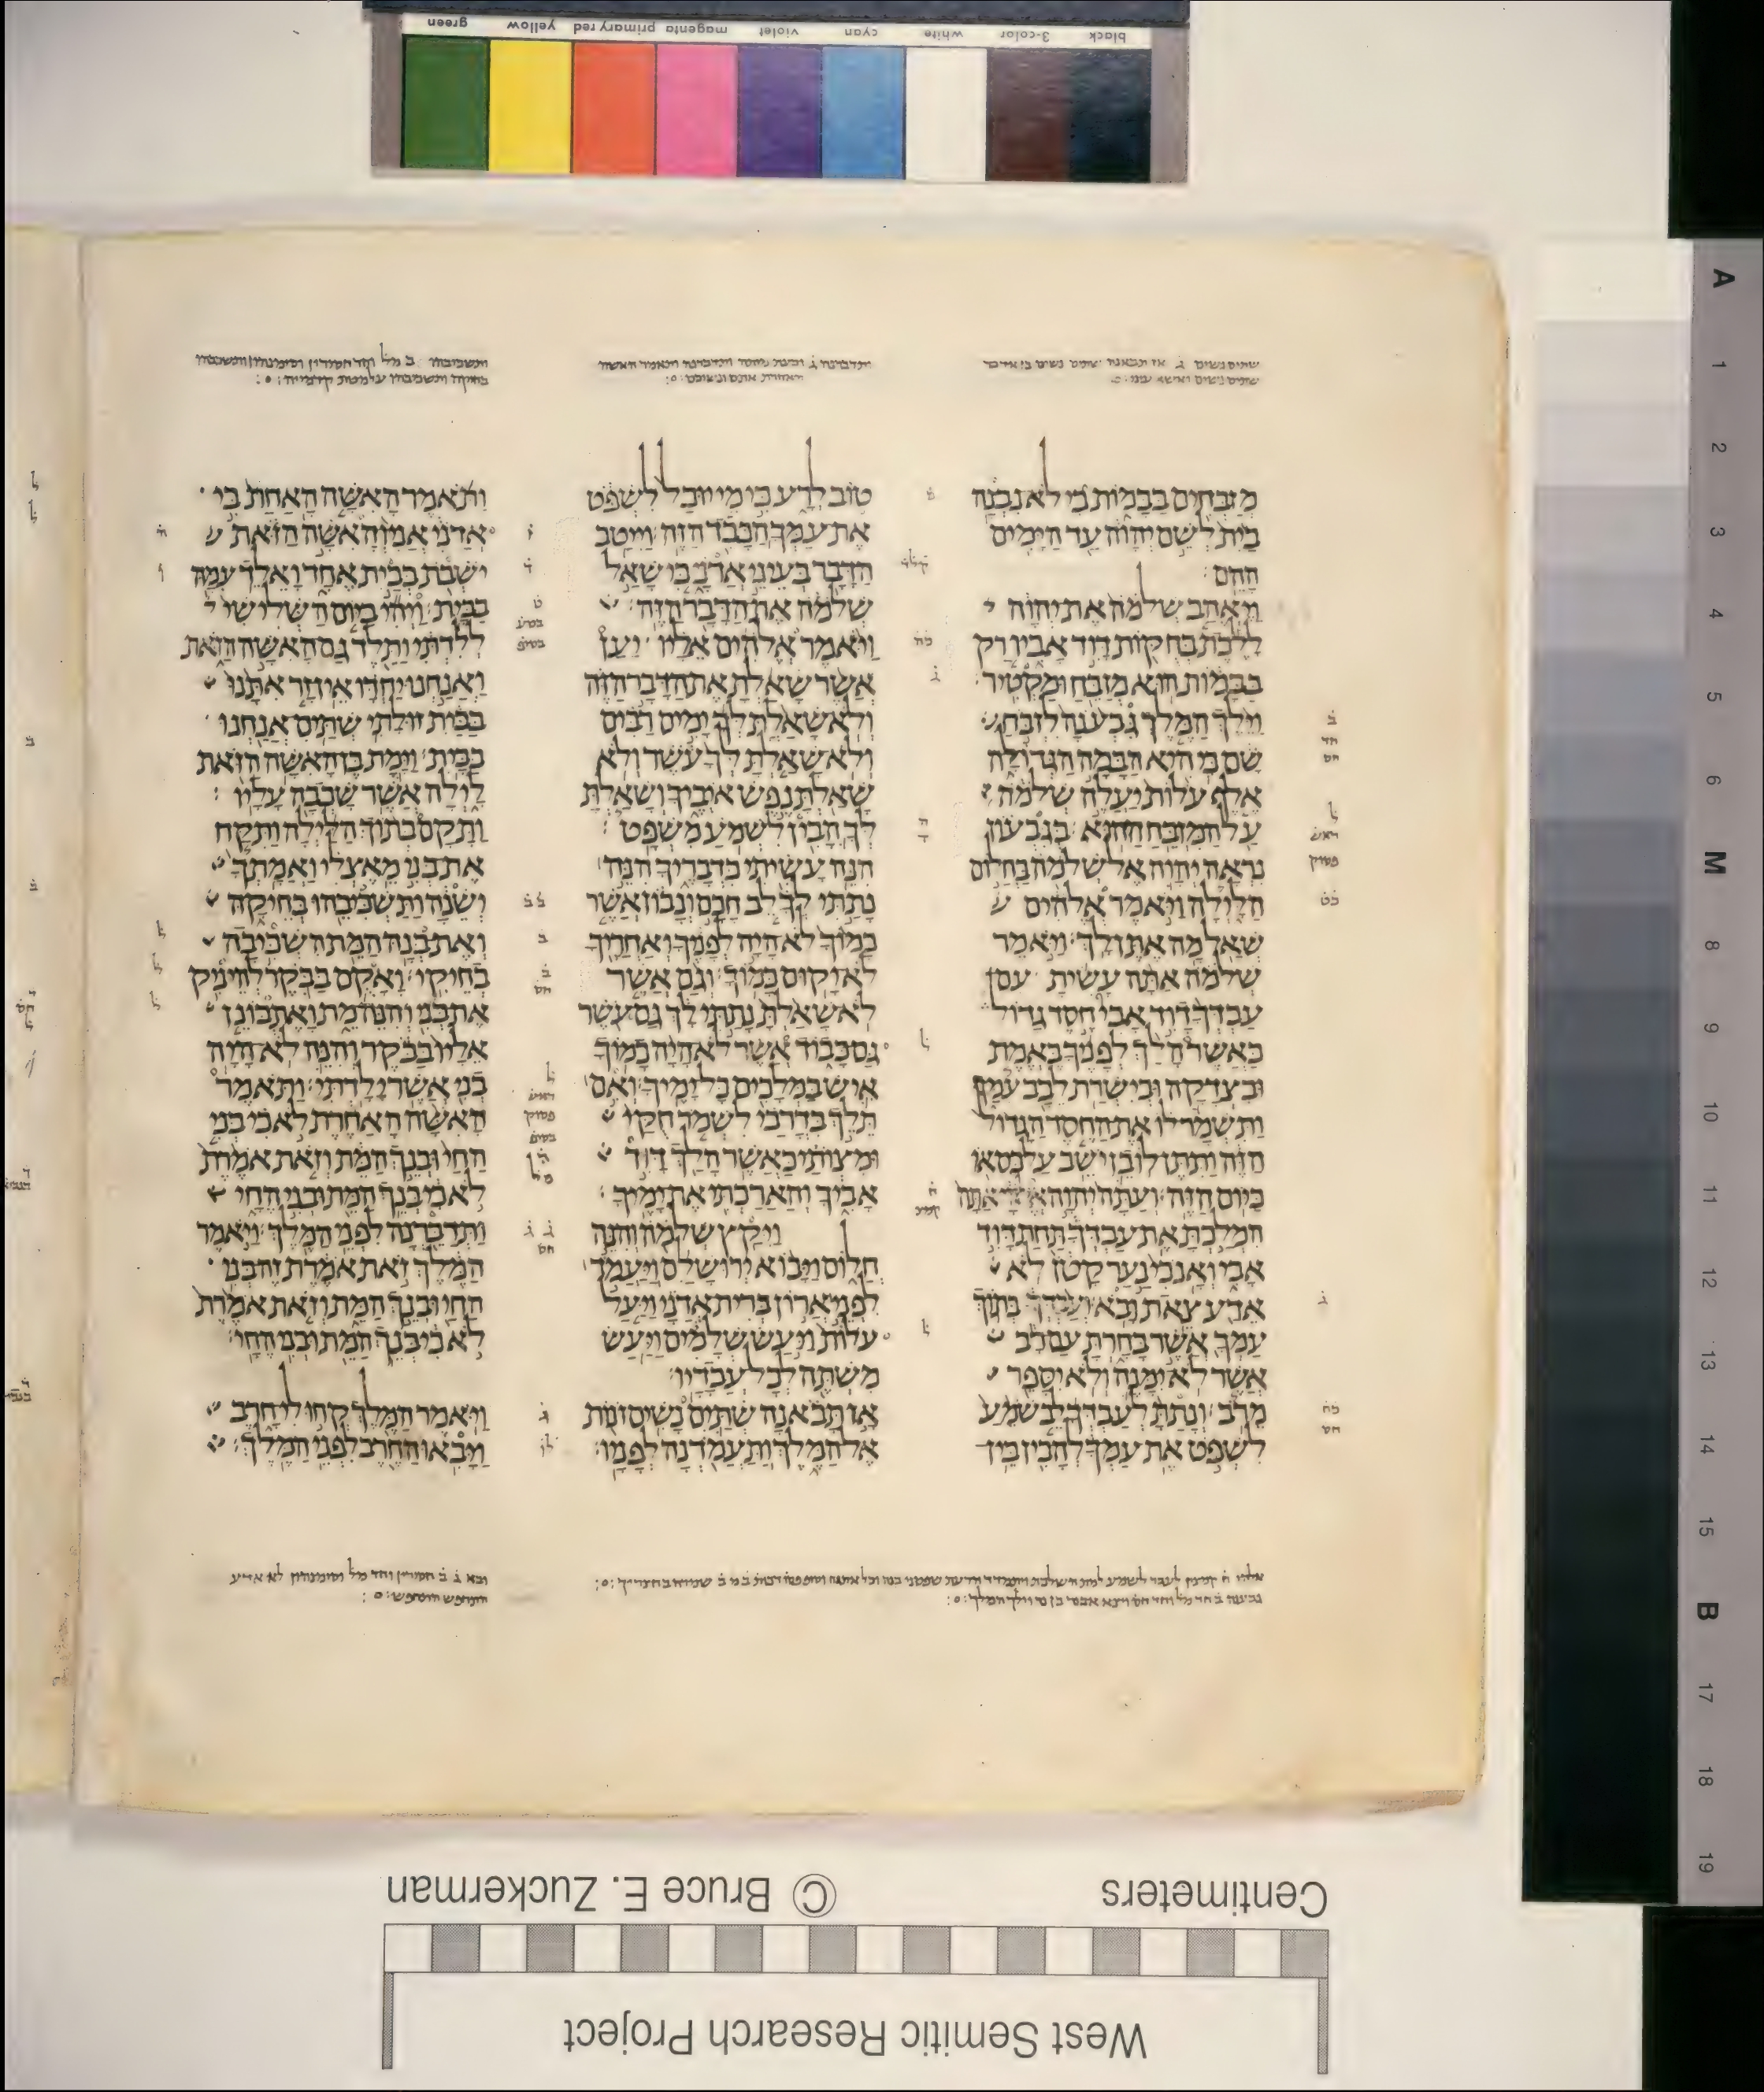 green yellow primary red magenta violet cyan white 3-color black
מזבחים בבמות כי לא נבנה
בית לשם יהוה עד הימים
ההם
ויאהב שלמה את יהוה
ללכת בחקות דוד אביו רק
בבמות הוא מזבח ומקטיר
וילך המלך גבענה לזבח
שם כי היא הבמה הגדולה
אלף עלות יעלה שלמה
על המזבח ההוא בגבעון
נראה יהוה אל שלמה בחלום
הלילה ויאמר אלהים
שאל מה אתן לך ויאמר
שלמה אתה עשית עם
עבדך דוד אבי חסד גדול
כאשר הלך לפניך באמת
ובצדקה ובישרת לבב עמך
ותשמר לו את החסד הגדול
הזה ותתן לו בן ישב על כסאו
כיום הזה ועתה יהוה אלהי אתה
המלכת את עבדך תחת דוד
אבי ואנכי נער קטן לא
אדע צאת ובא ועבדך בתוך
עמך אשר בחרת עם רב
אשר לא ימנה ולא יספר
מרב ונתת לעבדך לב שמע
לשפט את עמך להבין בין
טוב לרע כי מי יוכל לשפט
את עמך הכבד הזה וייטב
הדבר בעיני אדני כי שאל
שלמה את הדבר הזה
ויאמר אלהים אליו יען
אשר שאלת את הדבר הזה
ולא שאלת לך ימים רבים
ולא שאלת לך עשר ולא
שאלת נפש איביך ושאלת
לך הבין לשמע משפט
הנה עשיתי כדבריך הנה
נתתי לך לב חכם ונבון אשר
כמוך לא היה לפניך ואחריך
לא יקום כמוך וגם אשר
לא שאלת נתתי לך גם עשר
גם כבוד אשר לא היה כמוך
איש במלכים כל ימיך ואם
תלך בדרכי לשמר חקי
ומצותי כאשר הלך דויד
אביך והארכתי את ימיך
ויקץ שלמה והנה
חלום ויבוא ירושלם ויעמד
לפני ארון ברית אדני ויעל
עלות ויעש שלמים ויעש
משתה לכל עבדיו
אז תבאנה שתים נשים זנות
אל המלך ותעמדנה לפניו
ותאמר האשה האחת בי
אדני אני והאשה הזאת
ישבת בבית אחד ואלד עמה
בבית ויהי ביום השלישי
ללדתי ותלד גם האשה הזאת
ואנחנו יחדו אין זר אתנו
בבית זולתי שתים אנחנו
בבית וימת בן האשה הזאת
לילה אשר שכבה עליו
ותקם בתוך הלילה ותקח
את בני מאצלי ואמתך
ישנה ותשכיבהו בחיקה
ואת בנה המת השכיבה
בחיקי ואקם בבקר להיניק
את בני והנה מת ואתבונן
אליו בבקר והנה לא היה
בני אשר ילדתי ותאמר
האשה האחרת לא כי בני
החי ובנך המת וזאת אמרת
לא כי בנך המת ובני החי
ותדברנה לפני המלך ויאמר
המלך זאת אמרת זה בני
החי ובנך המת וזאת אמרת
לא כי בנך המת ובני החי
ויאמר המלך קחו לי חרב
ויבאו החרב לפני המלך
A 1 2 3 4 5 6 M 8 9 10 11 12 13 14 15 B 17 18 19
Centimeters © Bruce E. Zuckerman
West Semitic Research Project